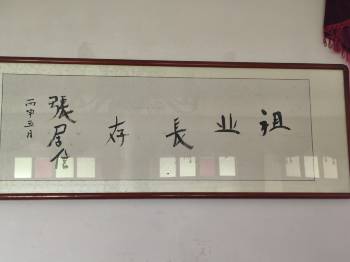 祖业長存
張居信
丙申五月